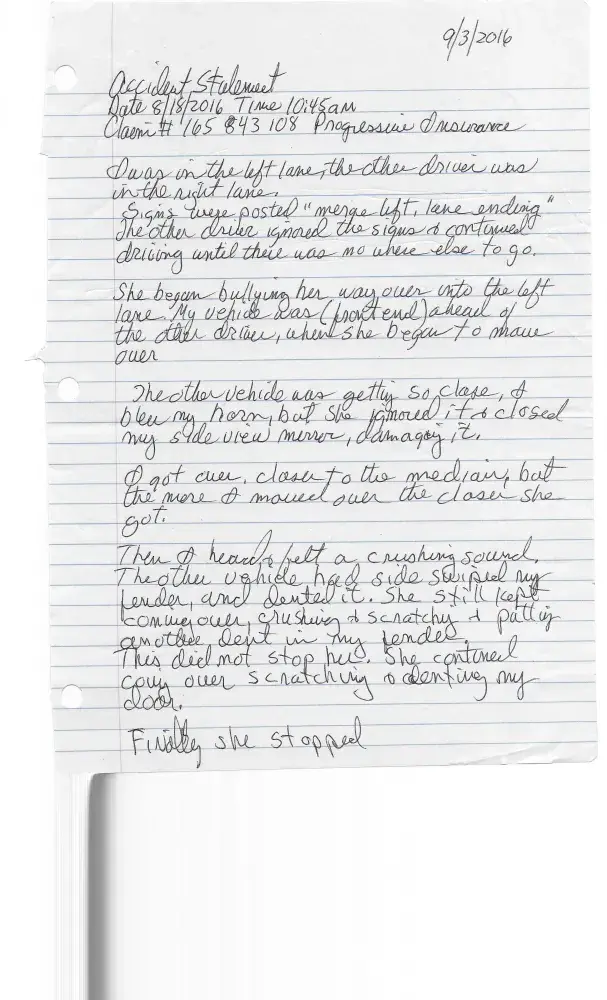 9/3/2016
Accident Statement
Date 8/18/2016 Time 10:45am
Claim # 165 843 108 Progressive Insurance
I was in the left lane, the other driver was
in the right lane.
Signs were posted "merge left, lane ending"
The other driver ignored the signs & continued
driving until there was no where else to go.
She began bullying her way over into the left
lane. My vehicle was (front end) ahead of
the other driver, when she began to move
over
The other vehicle was getting so close, I
blew my horn, but she ignored it & closed
my side view mirror, damaging it.
I got over, closer to the median, but
the more I moved over the closer she
got.
Then I heard & felt a crushing sound.
The other vehicle had side swiped my
fender, and dented it. She still kept
coming over, crushing & scratching & putting
another dent in my fender.
This did not stop her. She continued
coming over scratching & denting my
door.
Finally she stopped